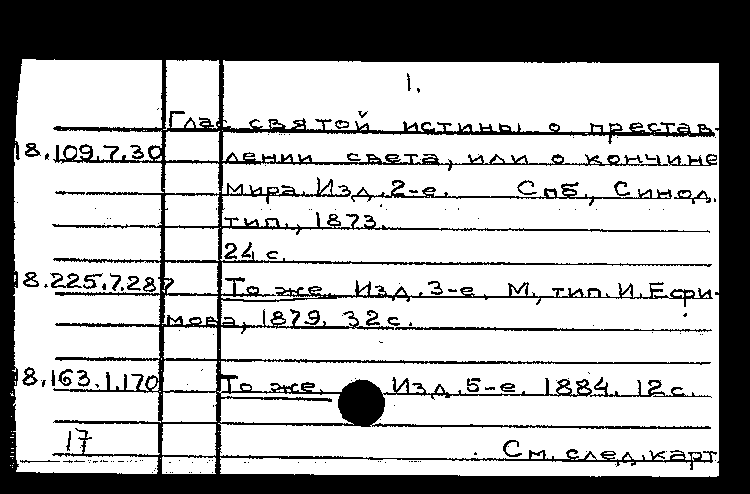 1.
Глас святой истины о престав-
18.109.7.30 лении света, или о кончине
мира. Изд. 2-е. Спб., Синод.
тип., 1873.
24 с.
18.225.7.287 То же. Изд. 3-е. М., тип. И. Ефи-
мова, 1879. 32 с.
18.163.1.170 То же. Изд. 5-е. 1884. 12 с.
17 См. след. карт